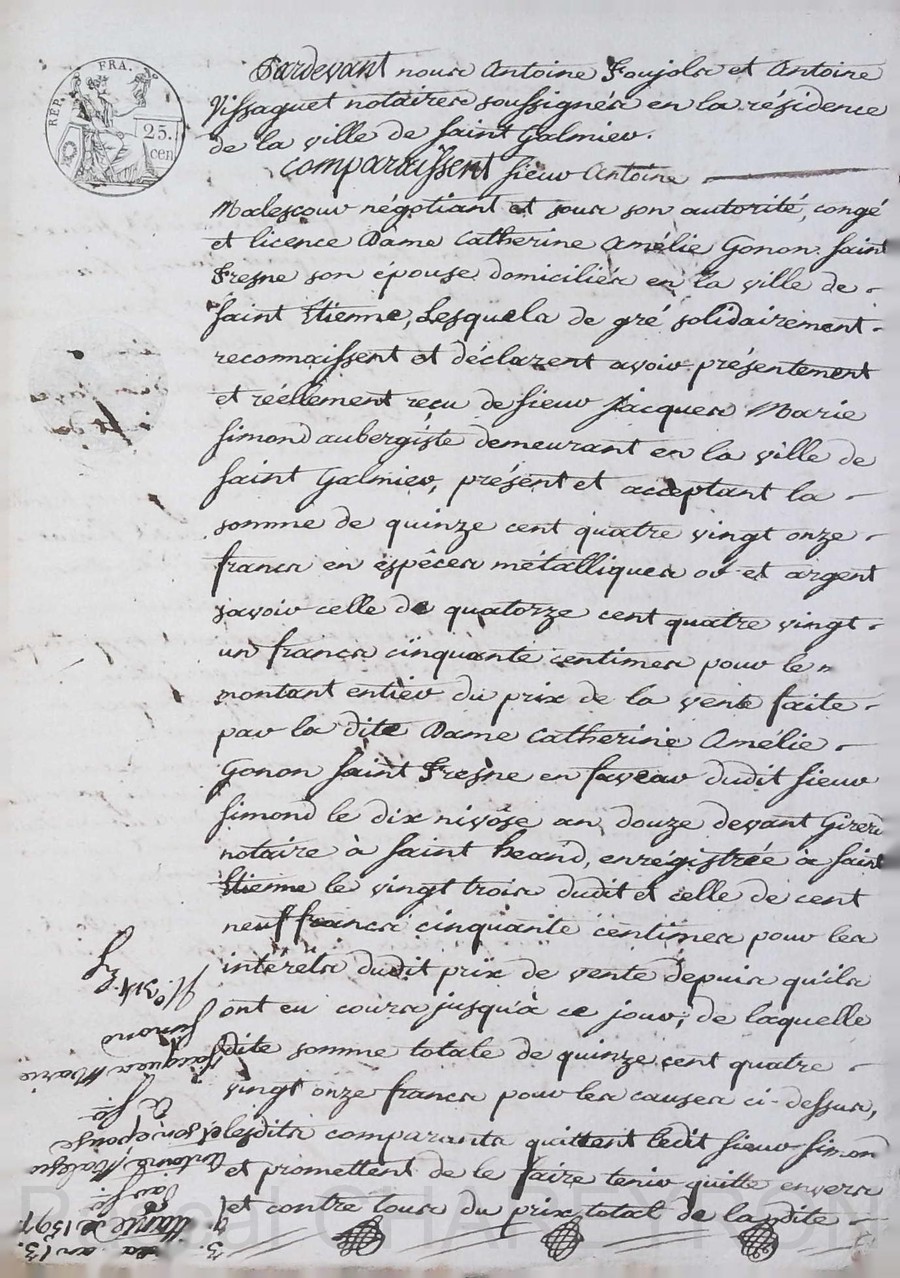 RÉP. FRA.
25.
cen
Pardevant nous Antoine Foujols et Antoine
Vissaguet notaires soussignés en la résidence
de la ville de Saint Galmier.
Comparaissent sieur Antoine
Malescour négotiant et sous son autorité, congé
et licence Dame Catherine Amélie Gonon Saint
Fresne son épouse domiciliés en la ville de
Saint Etienne, Lesquels de gré solidairement
reconnaissent et déclarent avoir présentement
et réellement reçu de sieur Jacques Marie
Simond aubergiste demeurant en la ville de
Saint Galmier, présent et acceptant la
somme de quinze cent quatre vingt onze
francs en espêces métalliques or et argent
savoir celle de quatorze cent quatre vingt
un francs cinquante centimes pour le
montant entier du prix de la vente faite
par la dite Dame Catherine Amélie
Gonon Saint Fresne en faveur dudit sieur
Simond le dix nivôse an douze devant Girerd
notaire à Saint heand, enrégistrée à Saint
Etienne le vingt trois dudit et celle de cent
neuf francs cinquante centimes pour les
intérêts dudit prix de vente depuis qu'ils
ont eu cours jusqu'à ce jour; de laquelle
dite somme totale de quinze cent quatre
vingt onze francs pour les causes ci-dessus,
lesdits comparants quittent ledit sieur Simond
et promettent de le faire tenir quitte envers
et contre tous du prix total de la dite
an 13.
quitte de 1591
par Sr.
Antoine Malescour
et son épouse
à Sr.
Jacques Marie
Simond
Pascal CHAREYRON